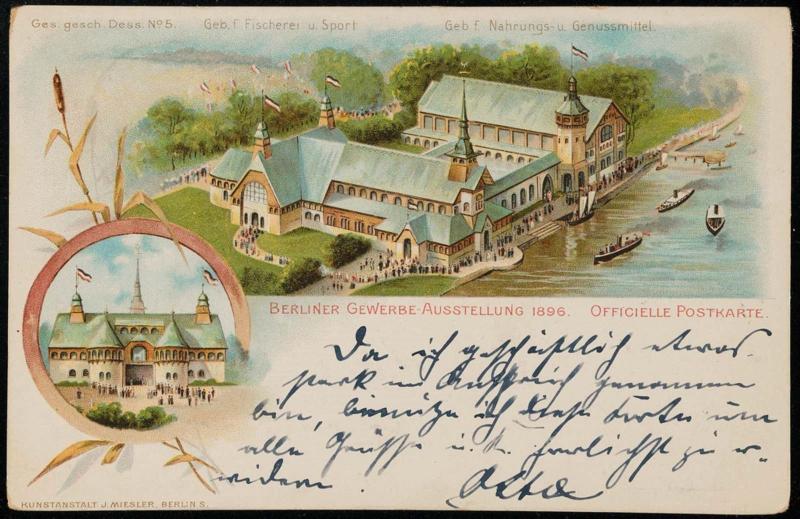 Ges. gesch. Dess. No 5. Geb. f. Fischerei u. Sport Geb. f. Nahrungs- u. Genussmittel.
BERLINER GEWERBE-AUSSTELLUNG 1896. OFFICIELLE POSTKARTE.
Da ich geschäftlich etwas
stark in Anspruch genommen
bin, benütze ich diese Karte um
alle Grüsse u. K. herzlichst zu er-
widern. Otto
KUNSTANSTALT J. MIESLER, BERLIN S.